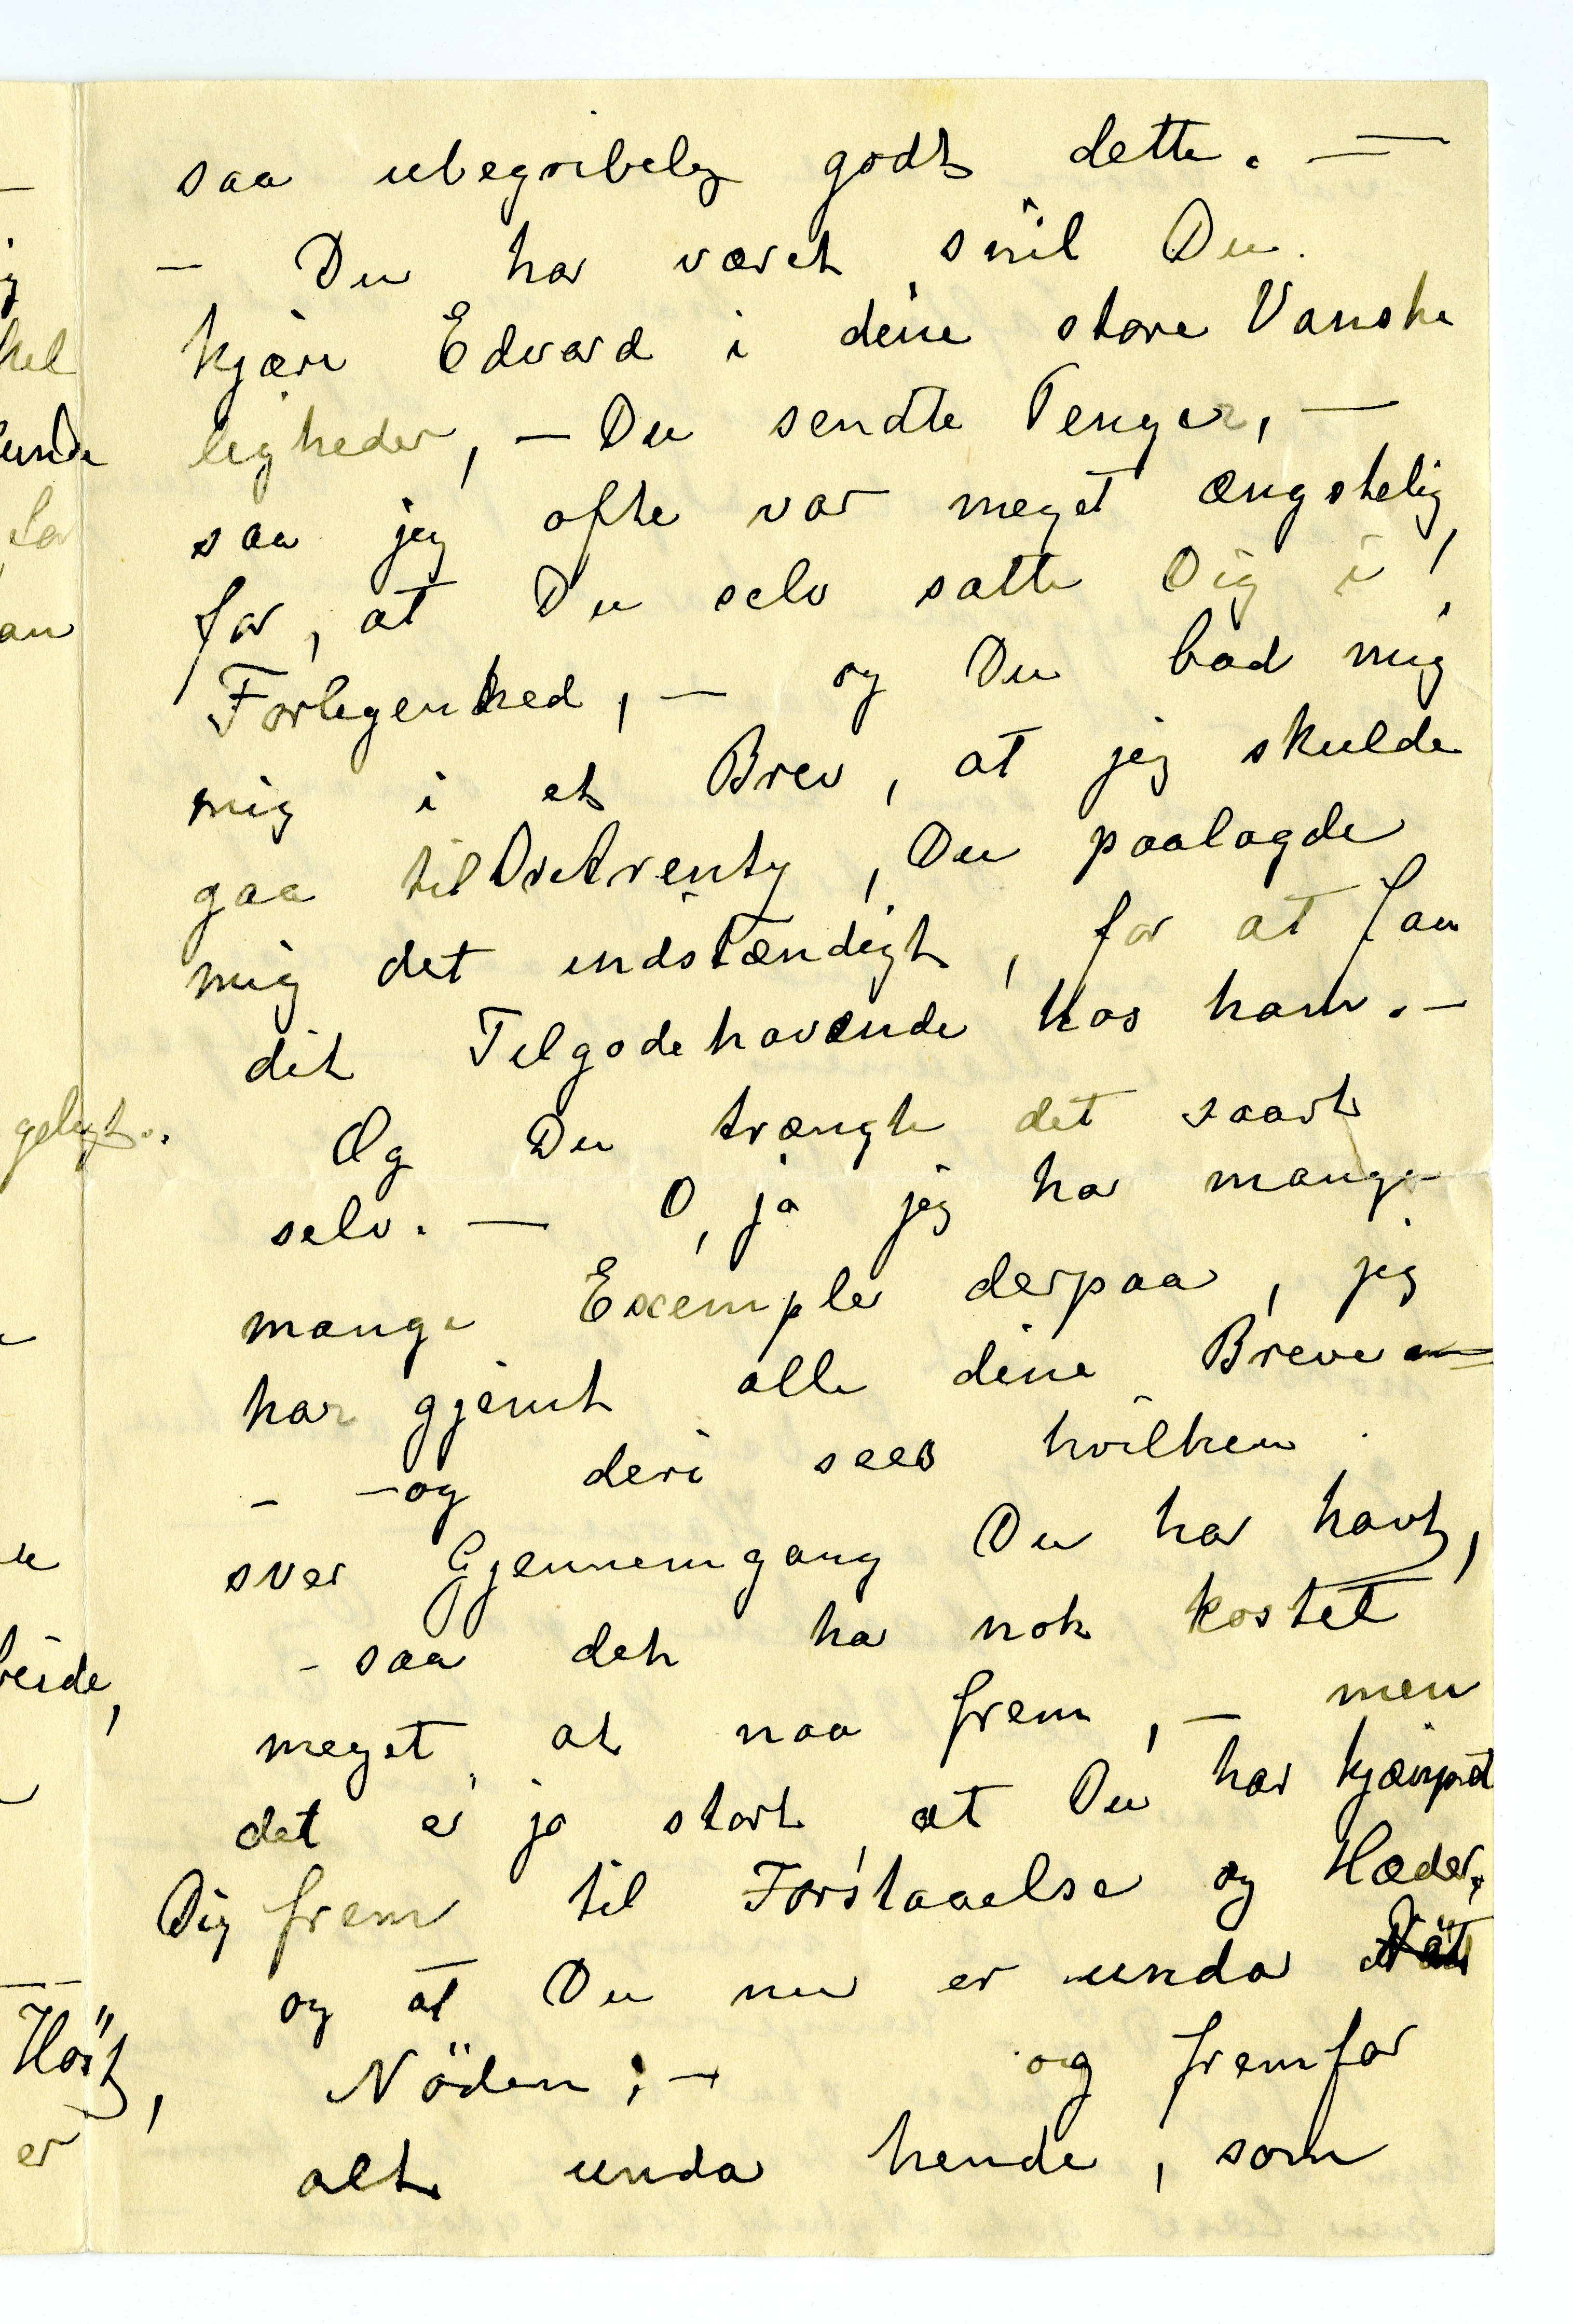 saa ubegribelig godt dette. —
— Du har været snil Du
kjære Edvard i dine store Vanske
ligheder, — Du sendte Penger, —
saa jeg ofte var meget ængstelig,
for, at Du selv satte Dig i
Forlegenhed, — og Du bad mig
mig i et Brev, at jeg skulde
gaa til Dr Arentz, Du paalagde
mig det indstændigt, for at faa
dit Tilgodehavende hos ham. —
Og Du trængte det saart
selv. — O, ja jeg har mange
mange Exempler derpaa, jeg
har gjemt alle dine Breve —
— — og deri sees hvilken
svær Gjennemgang Du har havt,
- saa det har nok kostet
meget at naa frem, — men
det er jo stort at Du har kjæmpet
Dig frem til Forstaaelse og Hæder,
og at Du nu er unda
Nöden; — og fremfor
alt unda hende, som
kel
kunde
for
an
geligt.
beide,
Höst,
er